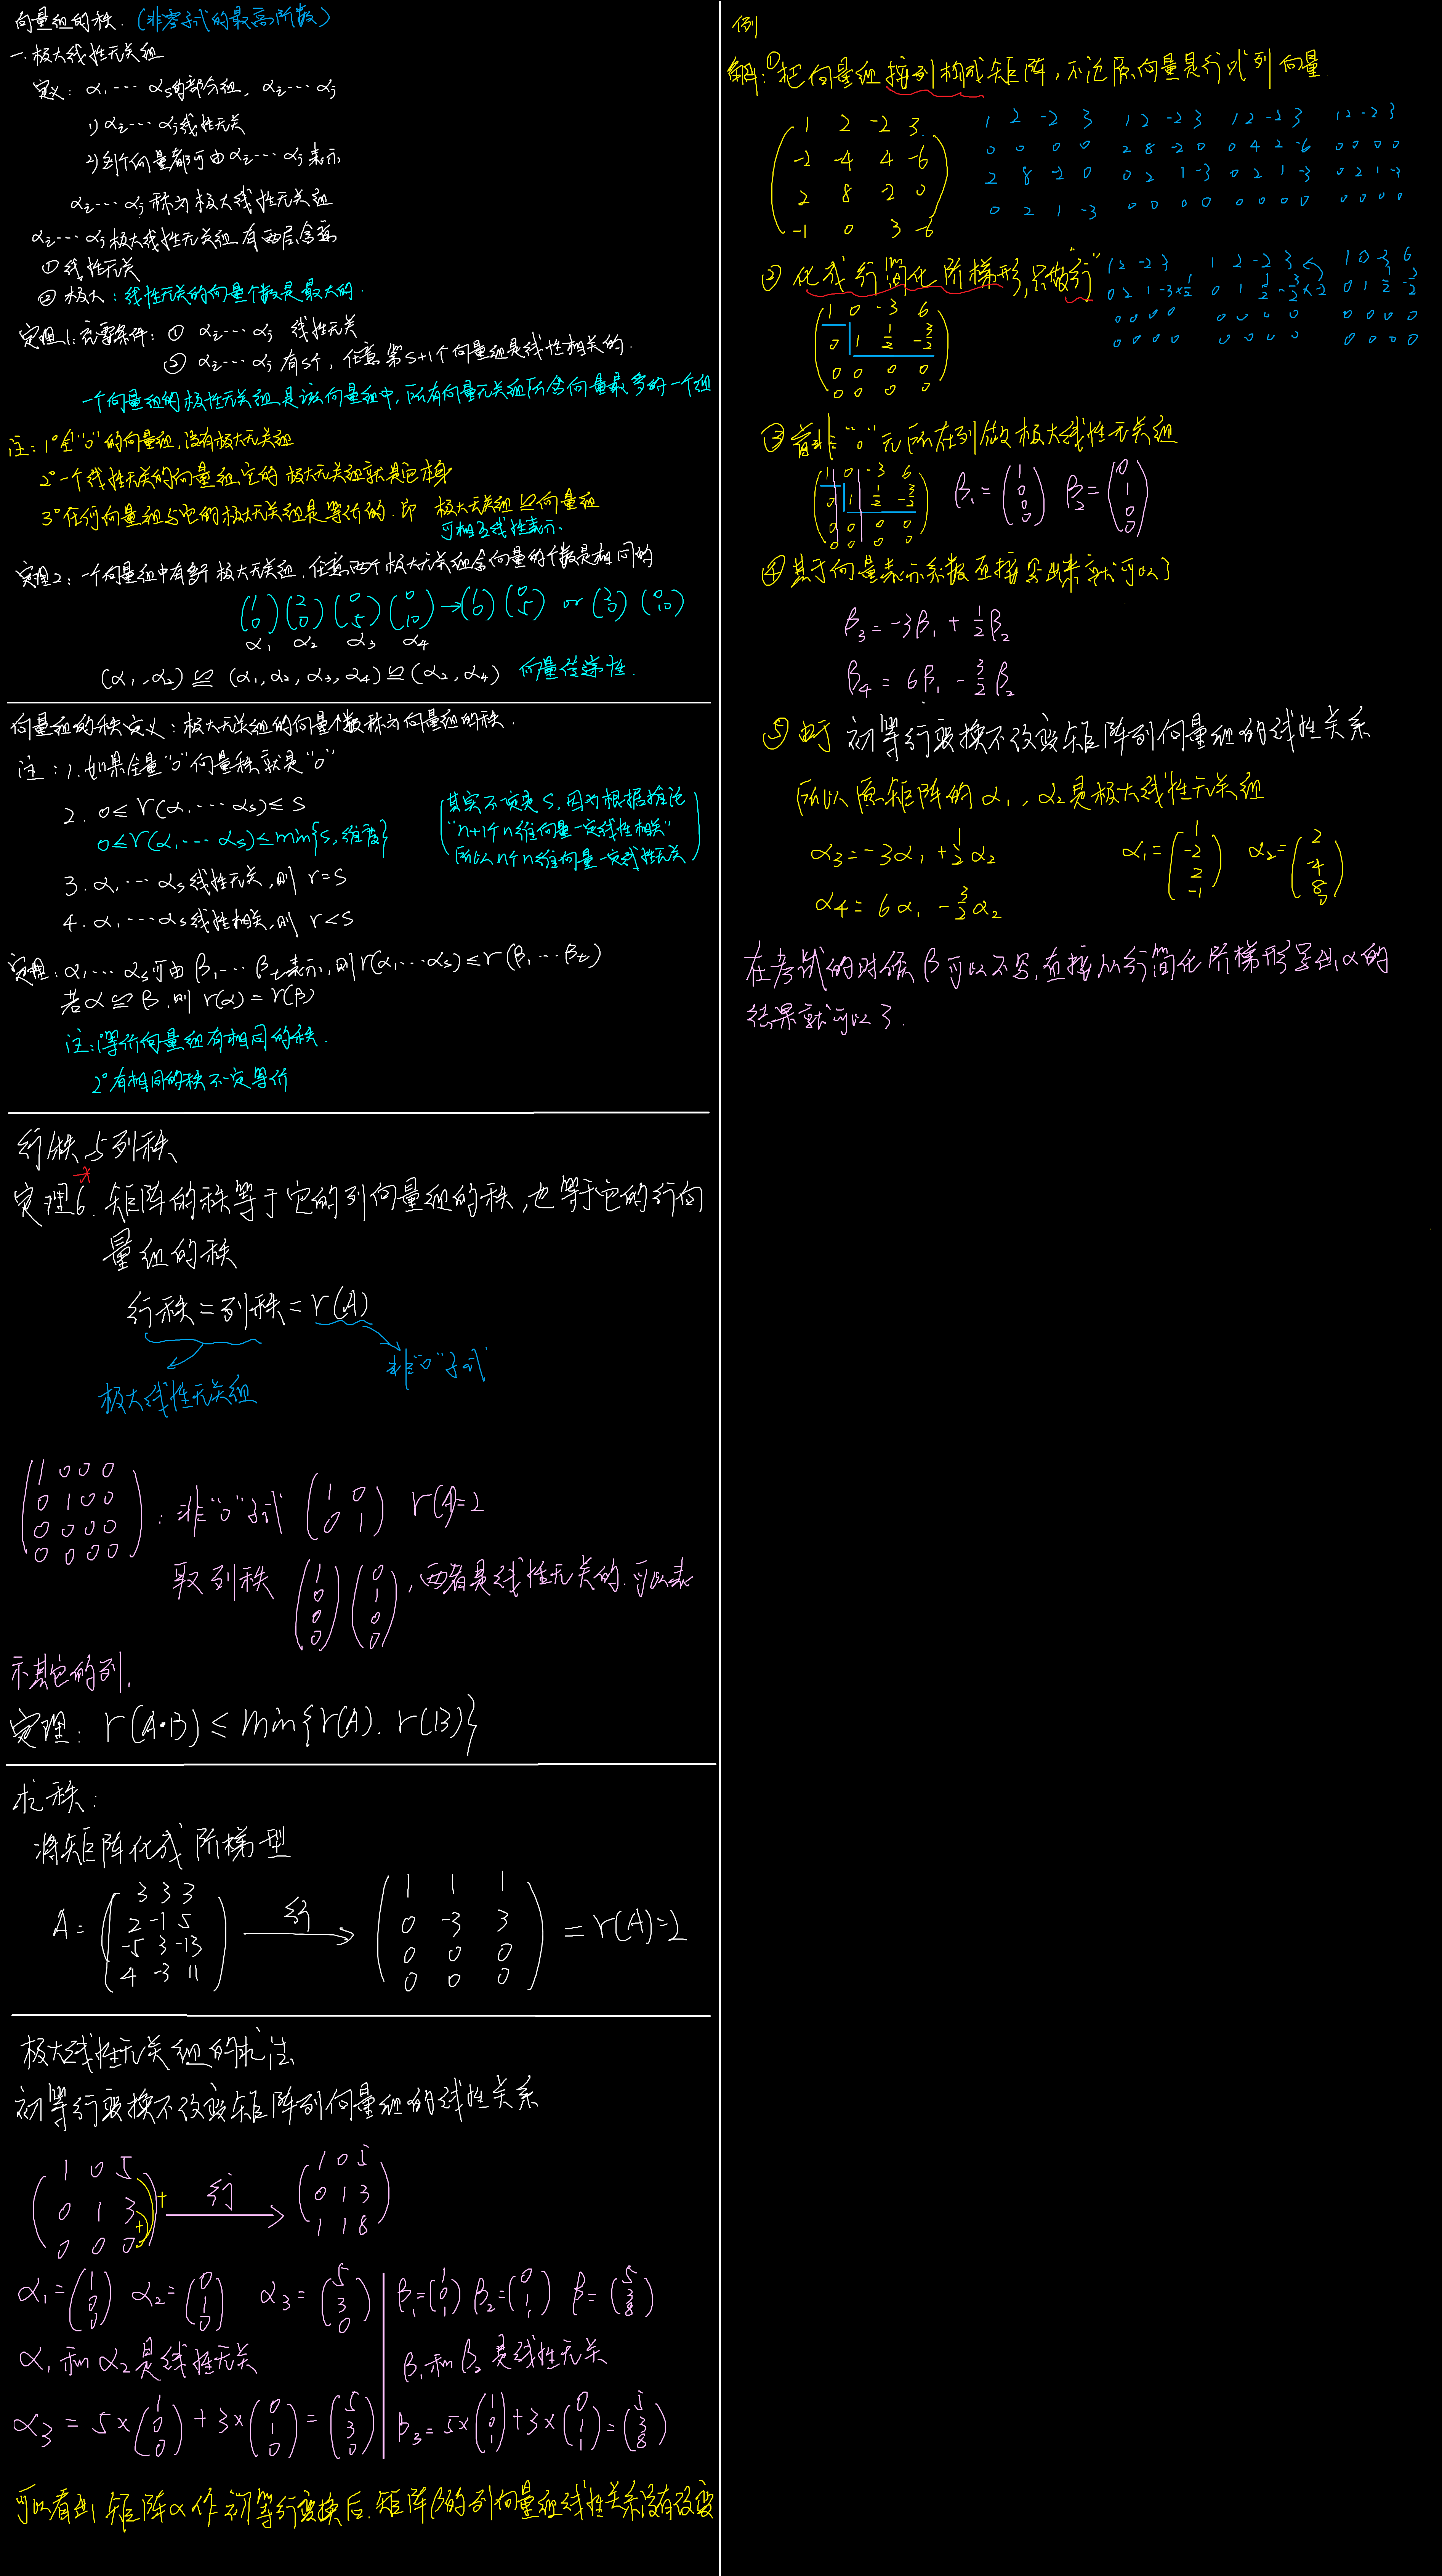 向量组的秩.(非零子式的最高阶数)
一.极大线性无关组
定义: α₁…αₛ的部分组, αᵢ…αⱼ
1) αᵢ…αⱼ线性无关
2) 每个向量都可由αᵢ…αⱼ表示
αᵢ…αⱼ称为极大线性无关组
αᵢ…αⱼ极大线性无关组有两层含义
① 线性无关
② 极大:线性无关的向量个数是最大的.
定理1:充要条件: ① αᵢ…αⱼ 线性无关
② αᵢ…αⱼ有S个, 任意第S+1个向量组是线性相关的.
一个向量组的极性无关组是该向量组中,所有向量无关组所含向量最多的一个组
注: 1°全"0"的向量组,没有极大无关组
2°一个线性无关的向量组,它的极大无关组就是它本身
3°任何向量组与它的极大无关组是等价的.即 极大无关组 ≌ 向量组
可相互线性表示.
定理2: 一个向量组中有多个极大无关组.任意两个极大无关组含向量的个数是相同的
(1 0) (2 0) (0 5) (0 10) → (1 0) (0 5) or (2 0) (0 10)
α₁ α₂ α₃ α₄
(α₁,α₂) ≌ (α₁,α₂,α₃,α₄) ≌ (α₂,α₄) 向量传递性.
向量组的秩定义:极大无关组的向量个数称为向量组的秩.
注: 1.如果全量"0"向量秩就是"0"
2. 0≤r(α₁…αₛ)≤S
0≤r(α₁…αₛ)≤min{S,维度}
(其实不一定是S,因为根据推论
"n+1个n维向量一定线性相关"
所以n个n维向量一定线性无关)
3. α₁…αₛ线性无关,则 r=S
4. α₁…αₛ线性相关,则 r<S
定理: α₁…αₛ可由β₁…βₜ表示,则r(α₁…αₛ)≤r(β₁…βₜ)
若α≌β,则 r(α)=r(β)
注:1°等价向量组有相同的秩.
2°有相同的秩不一定等价
行秩与列秩
定理6.矩阵的秩等于它的列向量组的秩,也等于它的行向
量组的秩
行秩=列秩=r(A)
极大线性无关组 非"0"子式
(1 0 0 0
0 1 0 0
0 0 0 0
0 0 0 0)
: 非"0"子式 (1 0 0 1) r(A)=2
取列秩 (1 0 0 0) (0 1 0 0),两者是线性无关的.可以表
示其它的列.
定理: r(A·B)≤min{r(A).r(B)}
求秩:
将矩阵化成阶梯型
A=
(3 3 3
2 -1 5
-5 3 -13
4 -3 11)
行→
(1 1 1
0 -3 3
0 0 0
0 0 0)
=r(A)=2
极大线性无关组的求法
初等行变换不改变矩阵列向量组的线性关系
(1 0 5
0 1 3
0 0 0)
+ + 行→
(1 0 5
0 1 3
1 1 8)
α₁=(1 0 0) α₂=(0 1 0) α₃=(5 3 0)
α₁和α₂是线性无关
α₃=5×(1 0 0)+3×(0 1 0)=(5 3 0)
β₁=(1 0 1) β₂=(0 1 1) β=(5 3 8)
β₁和β₂是线性无关
β₃=5×(1 0 1)+3×(0 1 1)=(5 3 8)
可以看出,矩阵α作初等行变换后.矩阵β的列向量组线性关系没有改变
例
解:①把向量组按列构成矩阵,不论原向量是行或列向量.
(1 2 -2 3
-2 -4 4 -6
2 8 -2 0
-1 0 3 -6)
1 2 -2 3
0 0 0 0
2 8 -2 0
0 2 1 -3
1 2 -2 3
2 8 -2 0
0 2 1 -3
0 0 0 0
1 2 -2 3
0 4 2 -6
0 2 1 -3
0 0 0 0
1 2 -2 3
0 0 0 0
0 2 1 -3
0 0 0 0
② 化成行简化阶梯形,只做"行"
1 2 -2 3
0 2 1 -3 ×½
0 0 0 0
0 0 0 0
1 2 -2 3
0 1 ½ -3/2 ×-2
0 0 0 0
0 0 0 0
1 0 -3 6
0 1 ½ -3/2
0 0 0 0
0 0 0 0
(1 0 -3 6
0 1 ½ -3/2
0 0 0 0
0 0 0 0)
③ 首非"0"元所在列做极大线性无关组
(1 0 -3 6
0 1 ½ -3/2
0 0 0 0
0 0 0 0)
β₁=(1 0 0 0) β₂=(0 1 0 0)
④其于向量表示系数直接写出来就可以了
β₃=-3β₁+½β₂
β₄=6β₁-3/2β₂
⑤由于 初等行变换不改变矩阵列向量组的线性关系
所以原矩阵的α₁,α₂是极大线性无关组
α₃=-3α₁+½α₂
α₄=6α₁-3/2α₂
α₁=(1 -2 2 -1) α₂=(2 -4 8 0)
在考试的时候β可以不写,直接从行简化阶梯形写出α的
结果就可以了.